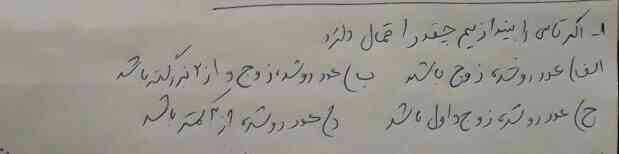 ۱- اگر تاسی را بیندازیم چقدر احتمال دارد
الف) عدد رو شده زوج باشد ب) عدد رو شده زوج و از ۲ بزرگتر باشد
ج) عدد رو شده زوج و اول باشد د) عدد رو شده از ۳ کمتر باشد